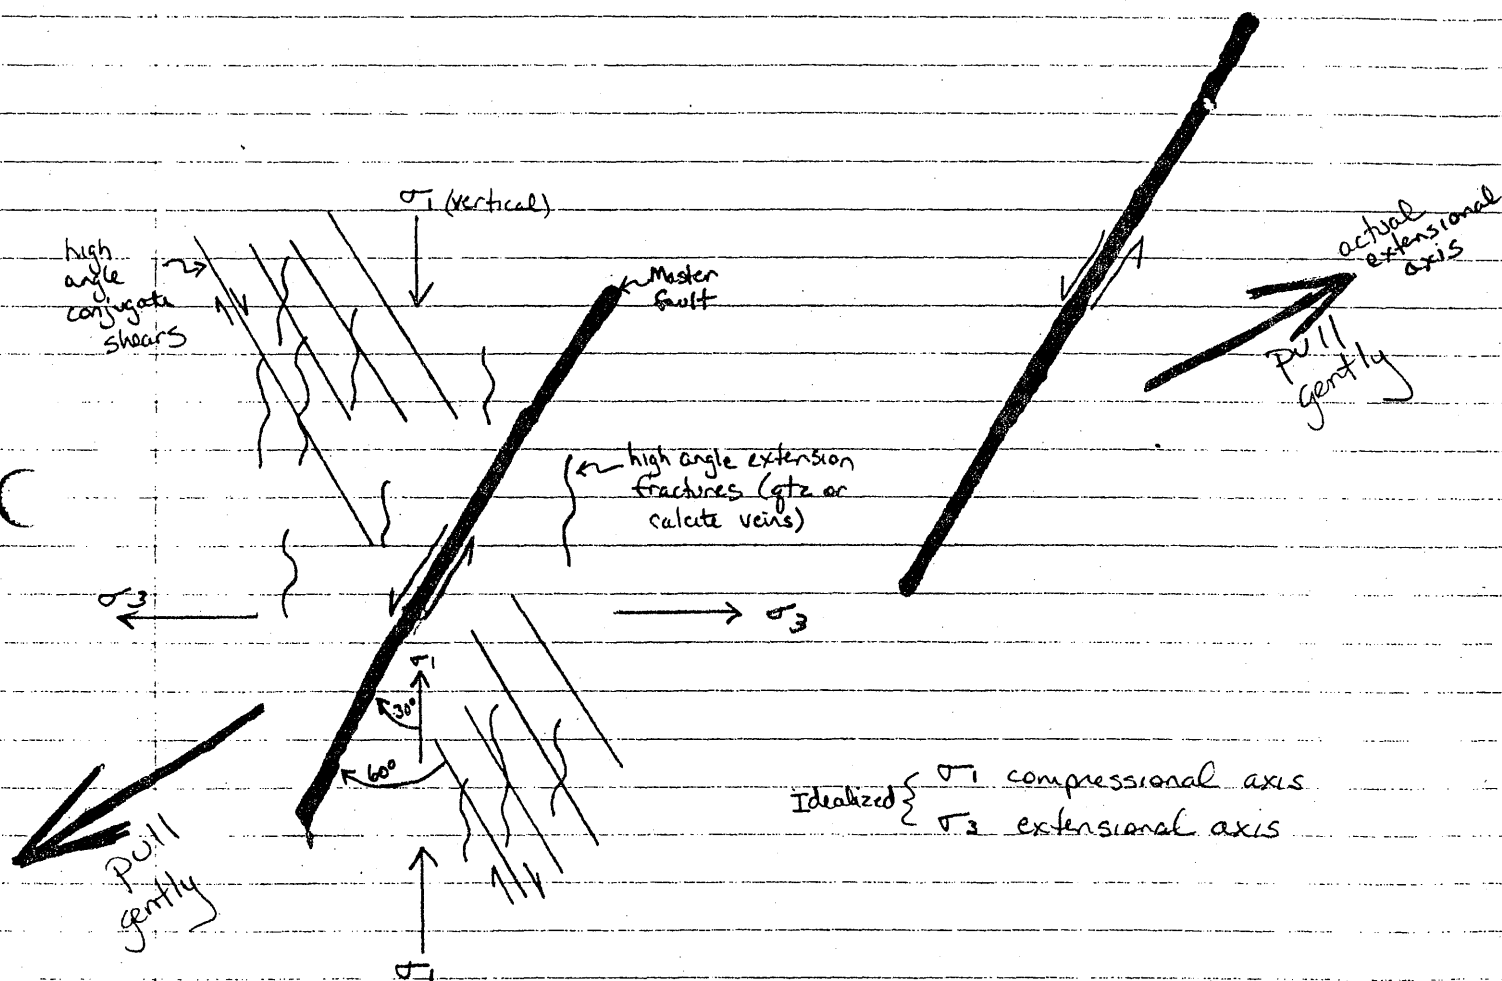 σ1 (vertical)
high
angle
conjugate
shears
Master
fault
actual
extensional
axis
pull
gently
high angle extension
fractures (qtz or
calcite veins)
σ3
σ3
σ1
30°
60°
pull
gently
Idealized { σ1 compressional axis
σ3 extensional axis
σ1